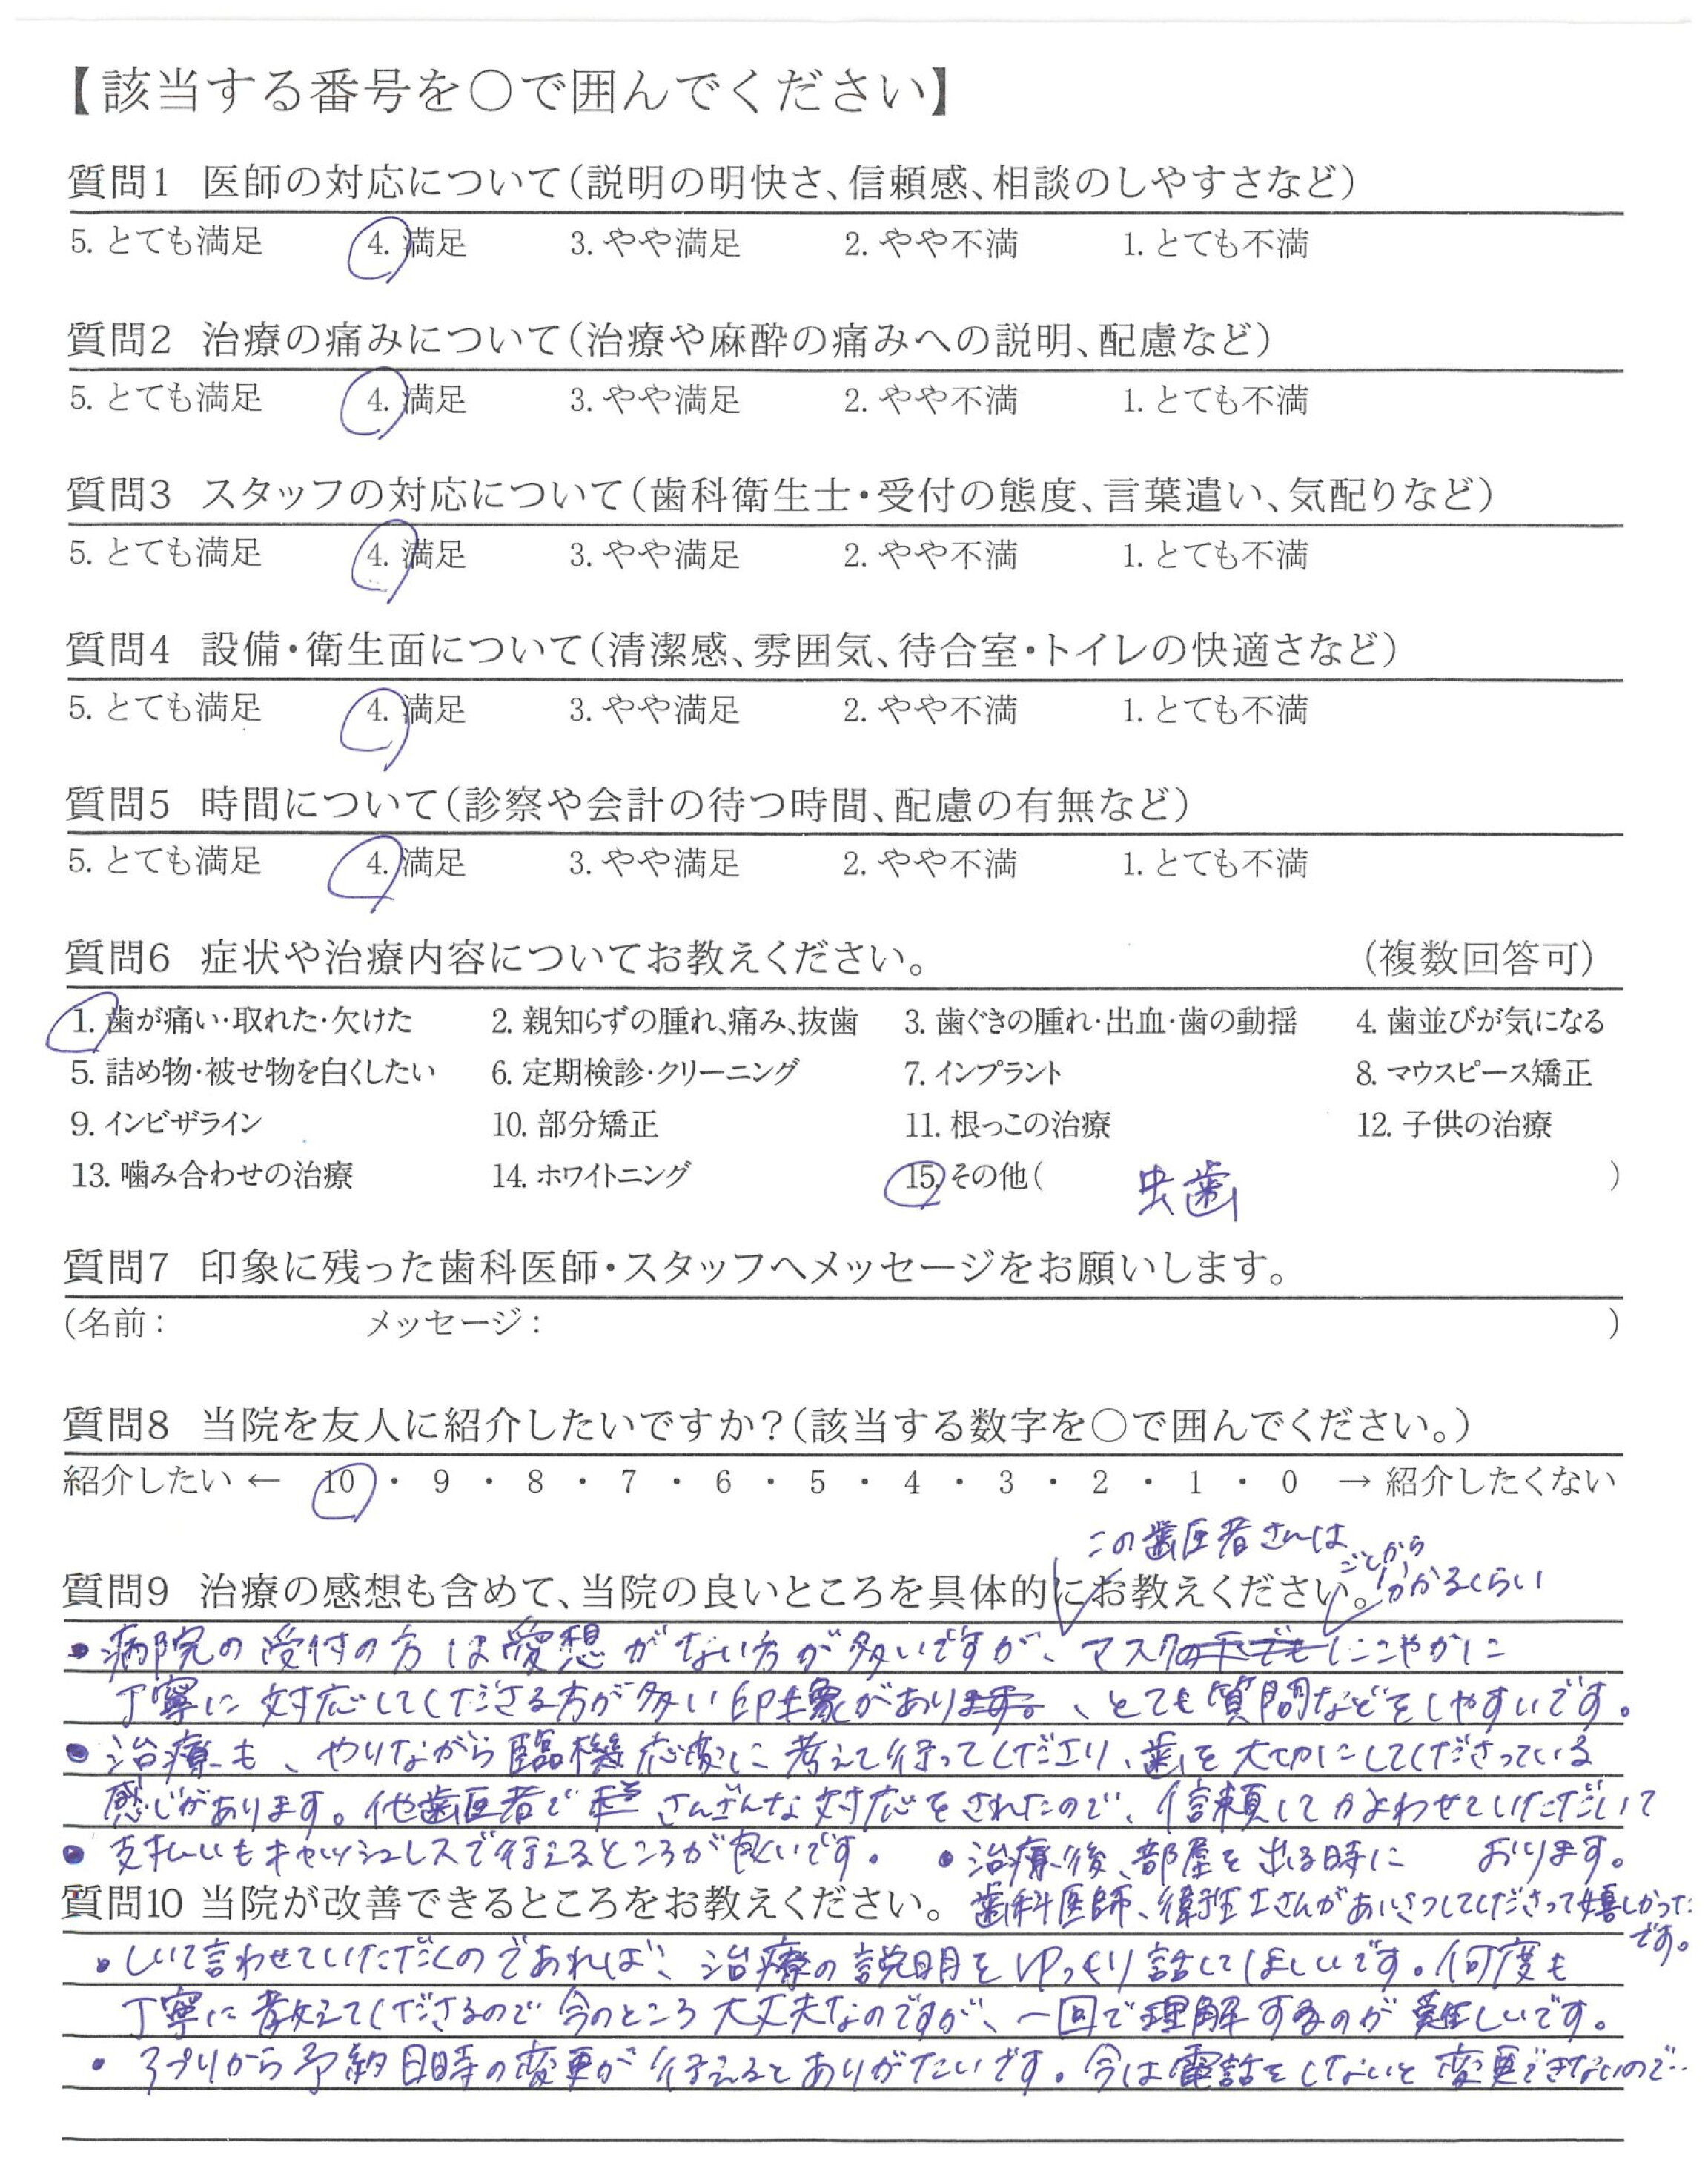 【該当する番号を○で囲んでください】
質問1 医師の対応について(説明の明快さ、信頼感、相談のしやすさなど)
5. とても満足 4. 満足 3. やや満足 2. やや不満 1. とても不満
質問2 治療の痛みについて(治療や麻酔の痛みへの説明、配慮など)
5. とても満足 4. 満足 3. やや満足 2. やや不満 1. とても不満
質問3 スタッフの対応について(歯科衛生士・受付の態度、言葉遣い、気配りなど)
5. とても満足 4. 満足 3. やや満足 2. やや不満 1. とても不満
質問4 設備・衛生面について(清潔感、雰囲気、待合室・トイレの快適さなど)
5. とても満足 4. 満足 3. やや満足 2. やや不満 1. とても不満
質問5 時間について(診察や会計の待つ時間、配慮の有無など)
5. とても満足 4. 満足 3. やや満足 2. やや不満 1. とても不満
質問6 症状や治療内容についてお教えください。 (複数回答可)
1. 歯が痛い・取れた・欠けた 2. 親知らずの腫れ、痛み、抜歯 3. 歯ぐきの腫れ・出血・歯の動揺 4. 歯並びが気になる
5. 詰め物・被せ物を白くしたい 6. 定期検診・クリーニング 7. インプラント 8. マウスピース矯正
9. インビザライン 10. 部分矯正 11. 根っこの治療 12. 子供の治療
13. 噛み合わせの治療 14. ホワイトニング 15. その他( 虫歯 )
質問7 印象に残った歯科医師・スタッフへメッセージをお願いします。
(名前: メッセージ: )
質問8 当院を友人に紹介したいですか?(該当する数字を○で囲んでください。)
紹介したい ← 10 ・ 9 ・ 8 ・ 7 ・ 6 ・ 5 ・ 4 ・ 3 ・ 2 ・ 1 ・ 0 → 紹介したくない
この歯医者さんは
ごしから
わかるくらい
質問9 治療の感想も含めて、当院の良いところを具体的にお教えください。
・病院の受付の方は愛想がない方が多いですが、マスクにこやかに
丁寧に対応してくださる方が多い印象があり、とても質問などをしやすいです。
・治療も、やりながら臨機応変に考えて行ってくださり、歯を大切にしてくださっている
感じがあります。他歯医者でさんざんな対応をされたので、信頼してかよわせていただいて
おります。
・支払いもキャッシュレスで行えるところが良いです。 ・治療後、部屋を出る時に
歯科医師、衛生士さんがあいさつしてくださって嬉しかった
です。
質問10 当院が改善できるところをお教えください。
・しいて言わせていただくのであれば、治療の説明をゆっくり話してほしいです。何度も
丁寧に教えてくださるので今のところ大丈夫なのですが、一回で理解するのが難しいです。
・アプリから予約日時の変更が行えるとありがたいです。今は電話をしないと変更できないので…